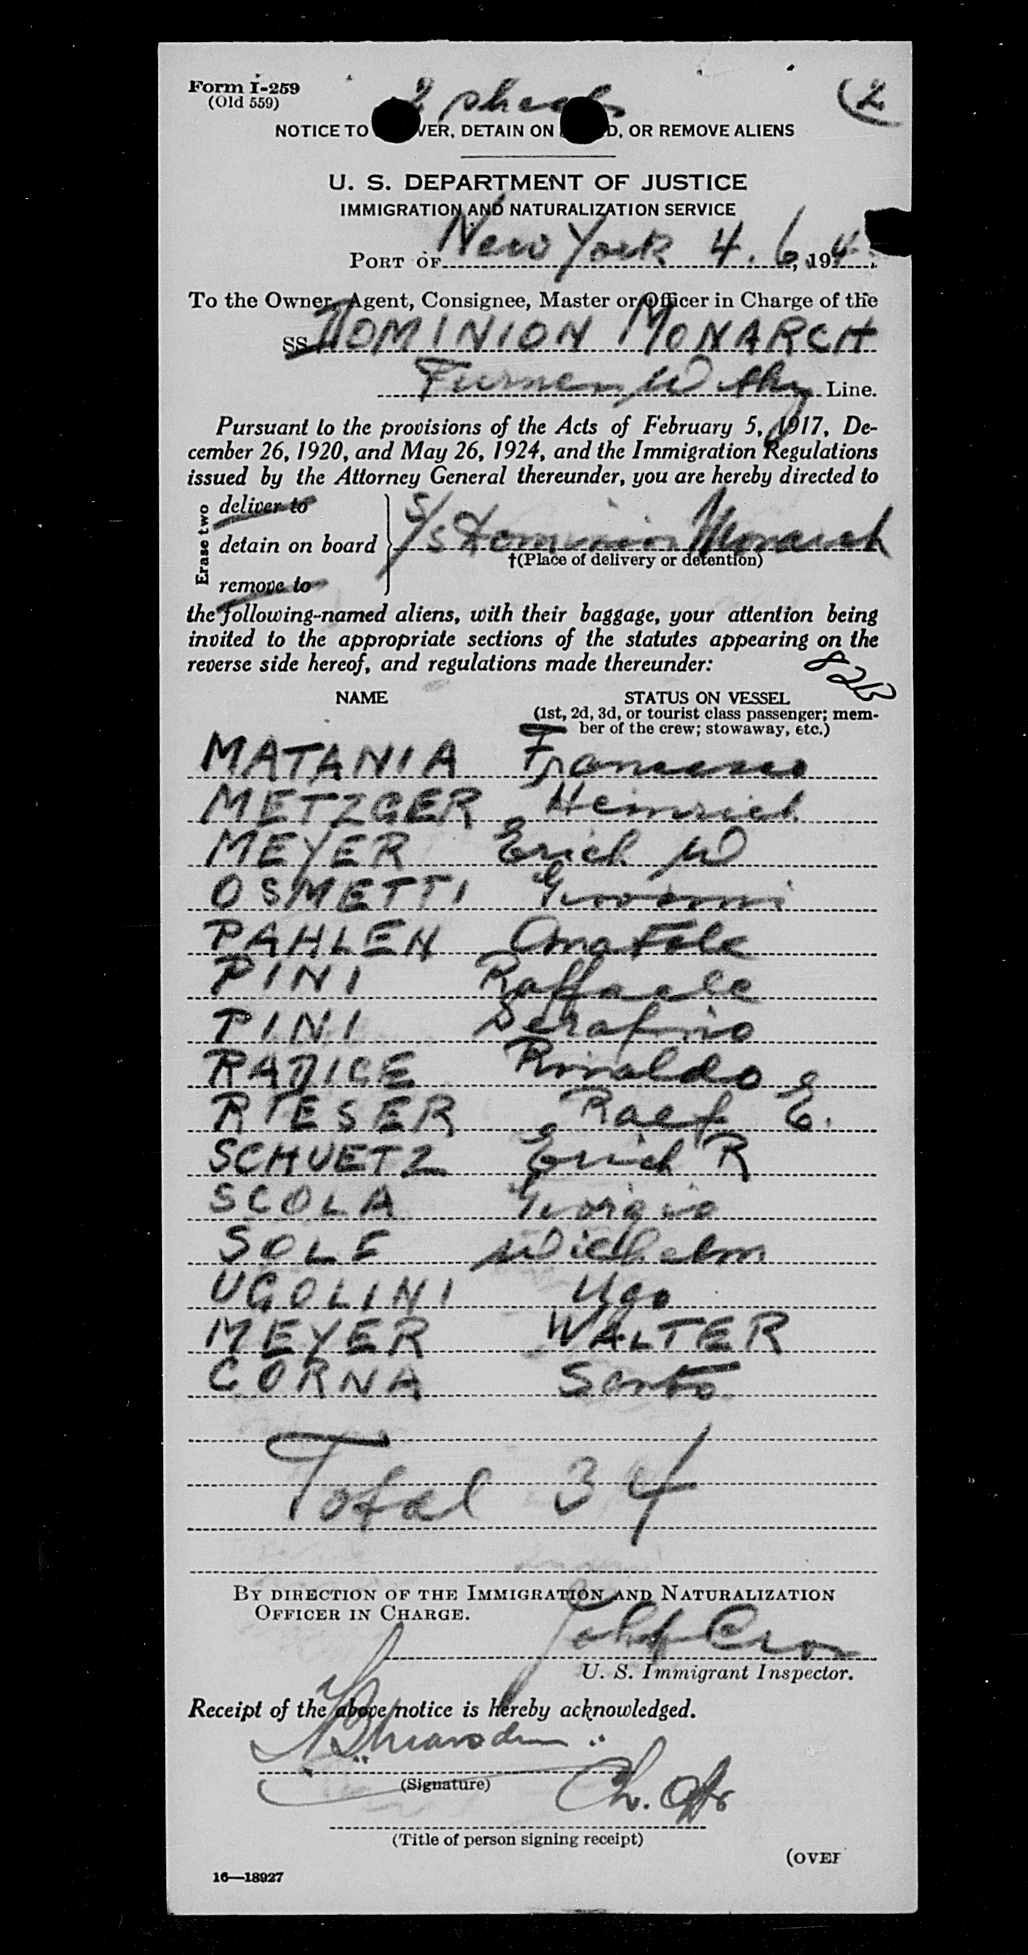 Form I-259
(Old 559)
2 sheets
(2
NOTICE TO VER, DETAIN ON D, OR REMOVE ALIENS
U. S. DEPARTMENT OF JUSTICE
IMMIGRATION AND NATURALIZATION SERVICE
PORT OF New York 4.6, 194
To the Owner, Agent, Consignee, Master or Officer in Charge of the
SS DOMINION MONARCH
Furness Withy Line.
Pursuant to the provisions of the Acts of February 5, 1917, De-
cember 26, 1920, and May 26, 1924, and the Immigration Regulations
issued by the Attorney General thereunder, you are hereby directed to
Erase two
deliver to
detain on board
remove to
S/S Dominion Monarch
†(Place of delivery or detention)
the following-named aliens, with their baggage, your attention being
invited to the appropriate sections of the statutes appearing on the
reverse side hereof, and regulations made thereunder:
NAME STATUS ON VESSEL
(1st, 2d, 3d, or tourist class passenger; mem-
ber of the crew; stowaway, etc.)
MATANIA Francesco
METZGER Heinrich
MEYER Erich W
OSMETTI Giovanni
PAHLEN
PINI Raffaele
PINI Serafino
RADICE Rinaldo
RIESER Ralf E.
SCHUETZ Erich R
SCOLA Giorgio
SOLE Wilhelm
UGOLINI Ugo
MEYER WALTER
CORNA Santo
Total 34
BY DIRECTION OF THE IMMIGRATION AND NATURALIZATION
OFFICER IN CHARGE.
U. S. Immigrant Inspector.
Receipt of the above notice is hereby acknowledged.
(Signature)
Ch. Offr
(Title of person signing receipt)
(OVER
16—18927